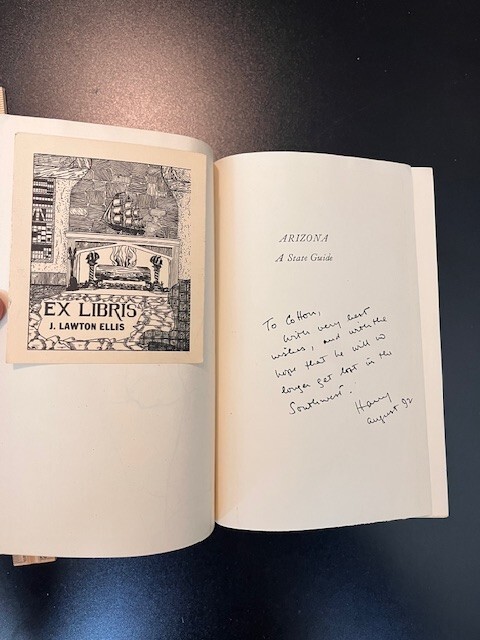 EX LIBRIS
J. LAWTON ELLIS
ARIZONA
A State Guide
To Cotton,
with very best
wishes, and with the
hope that he will no
longer get lost in the
Southwest.
Harry
August 92